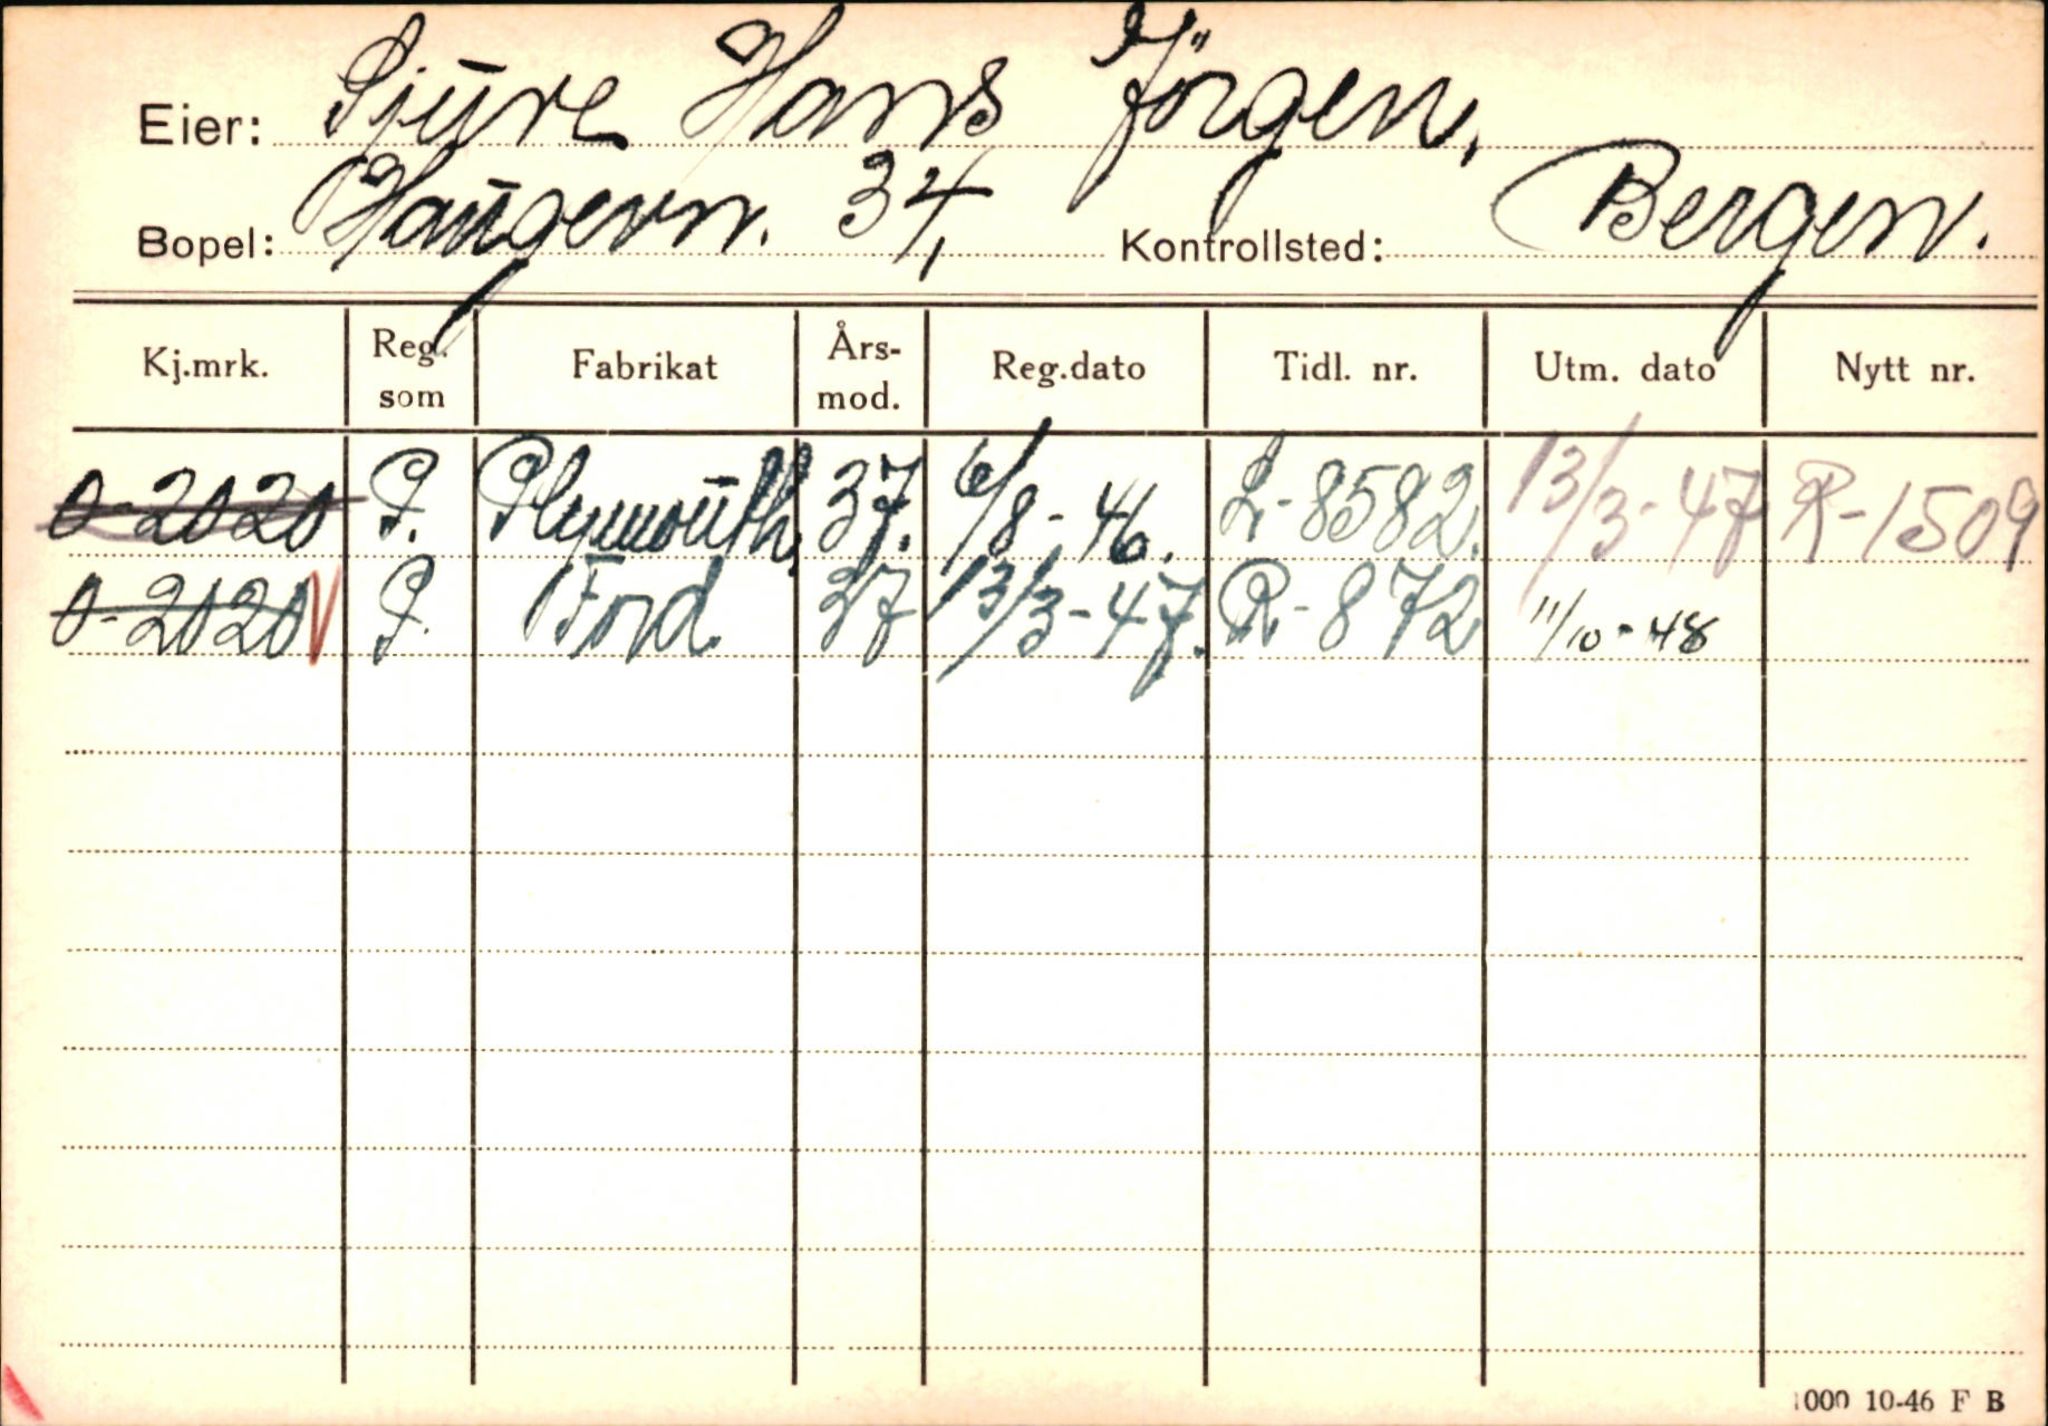 Eier: Sjure Hans Jörgen,
Bopel: Haugevn. 34, Kontrollsted: Bergen.
Kj.mrk. Reg. som Fabrikat Års-mod. Reg.dato Tidl. nr. Utm. dato Nytt nr.
O-2020 P. Plymouth, 37. 6/8-46. L-8582. 13/3-47 R-1509
O-2020 V P. Ford. 37 13/3-47. R-872 11/10-48
1000 10-46 F B